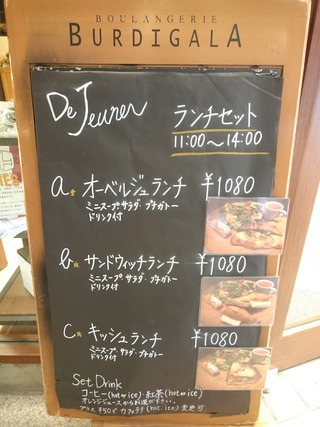 BOULANGERIE
BURDIGALA
DeJeuner
ランチセット
11:00〜14:00
a オーベルジュランチ ¥1080
ミニスープ・サラダ・プチガトー
ドリンク付
b サンドウィッチランチ ¥1080
ミニスープ・サラダ・プチガトー
ドリンク付
c キッシュランチ ¥1080
ミニスープ・サラダ・プチガトー
ドリンク付
Set Drink
コーヒー(hot or ice)・紅茶(hot or ice)
オレンジジュースからお選び下さい。
プラス ¥50で カフェラテ(hot. ice) 変更可